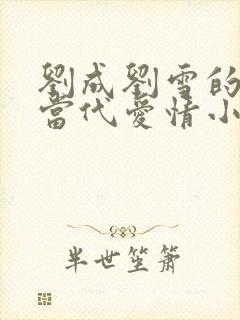 劉成劉雪的
當代愛情小
半世笙簫